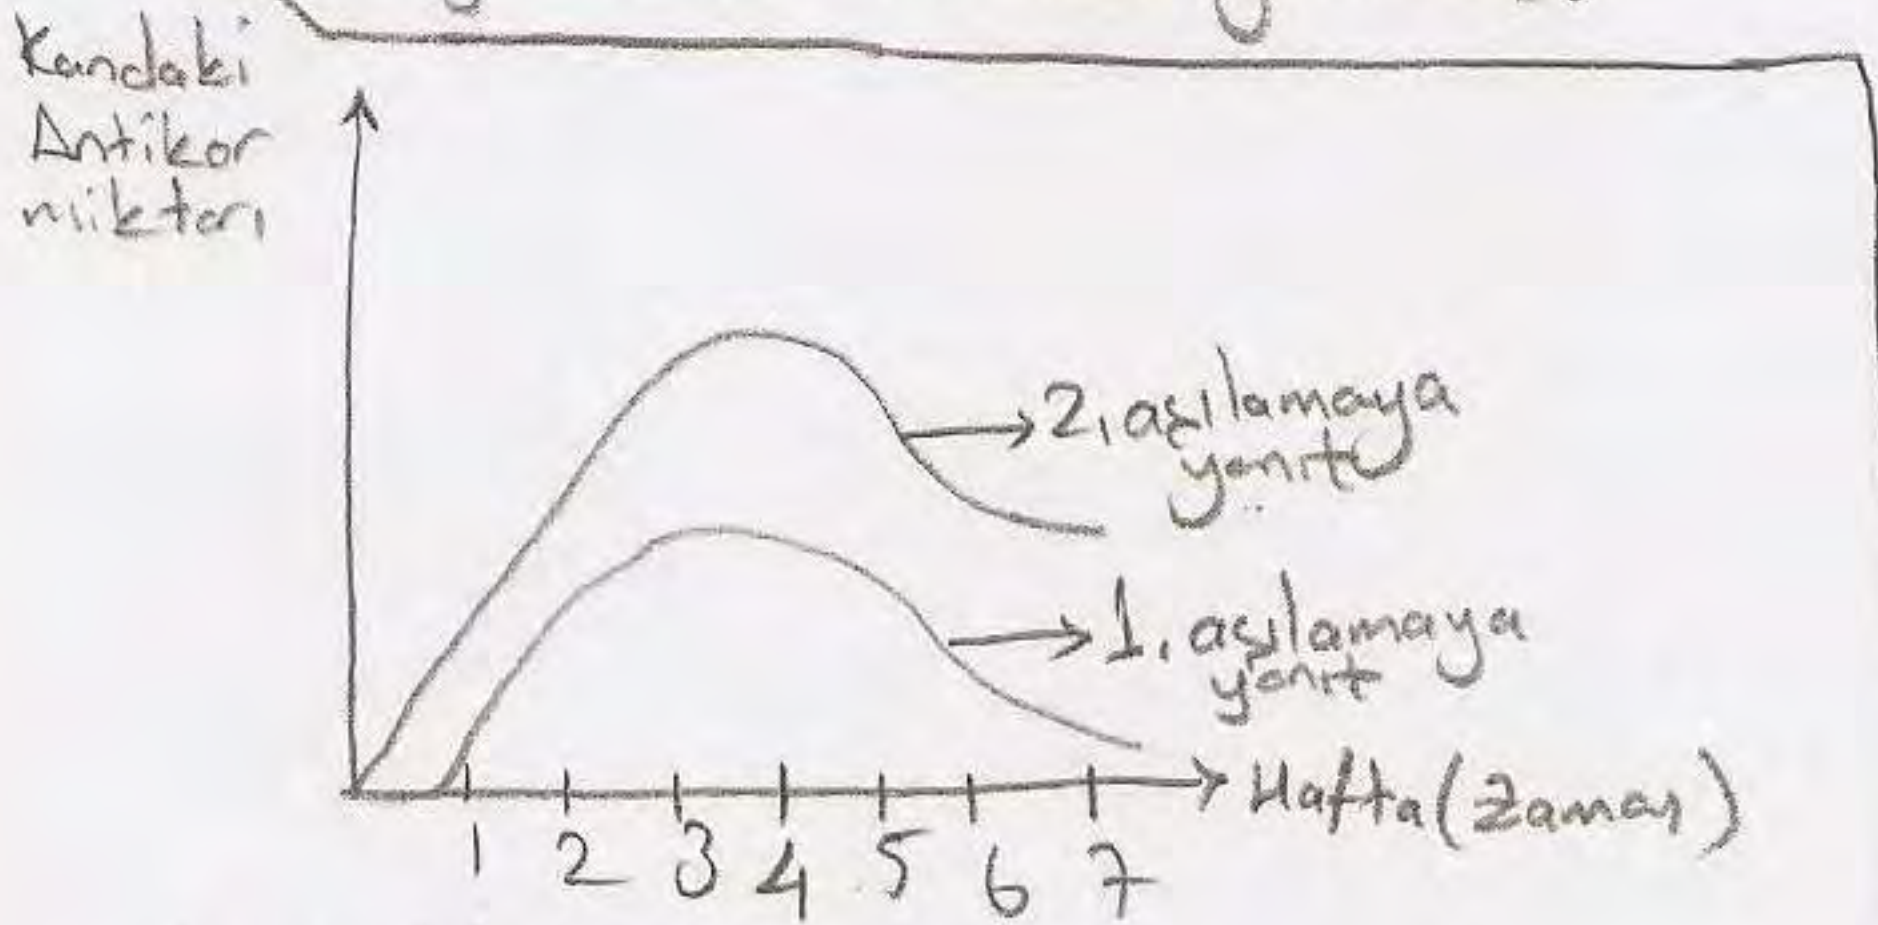 Kandaki
Antikor
miktarı
2. aşılamaya
yanıt
1. aşılamaya
yanıt
Hafta (Zaman)
1 2 3 4 5 6 7